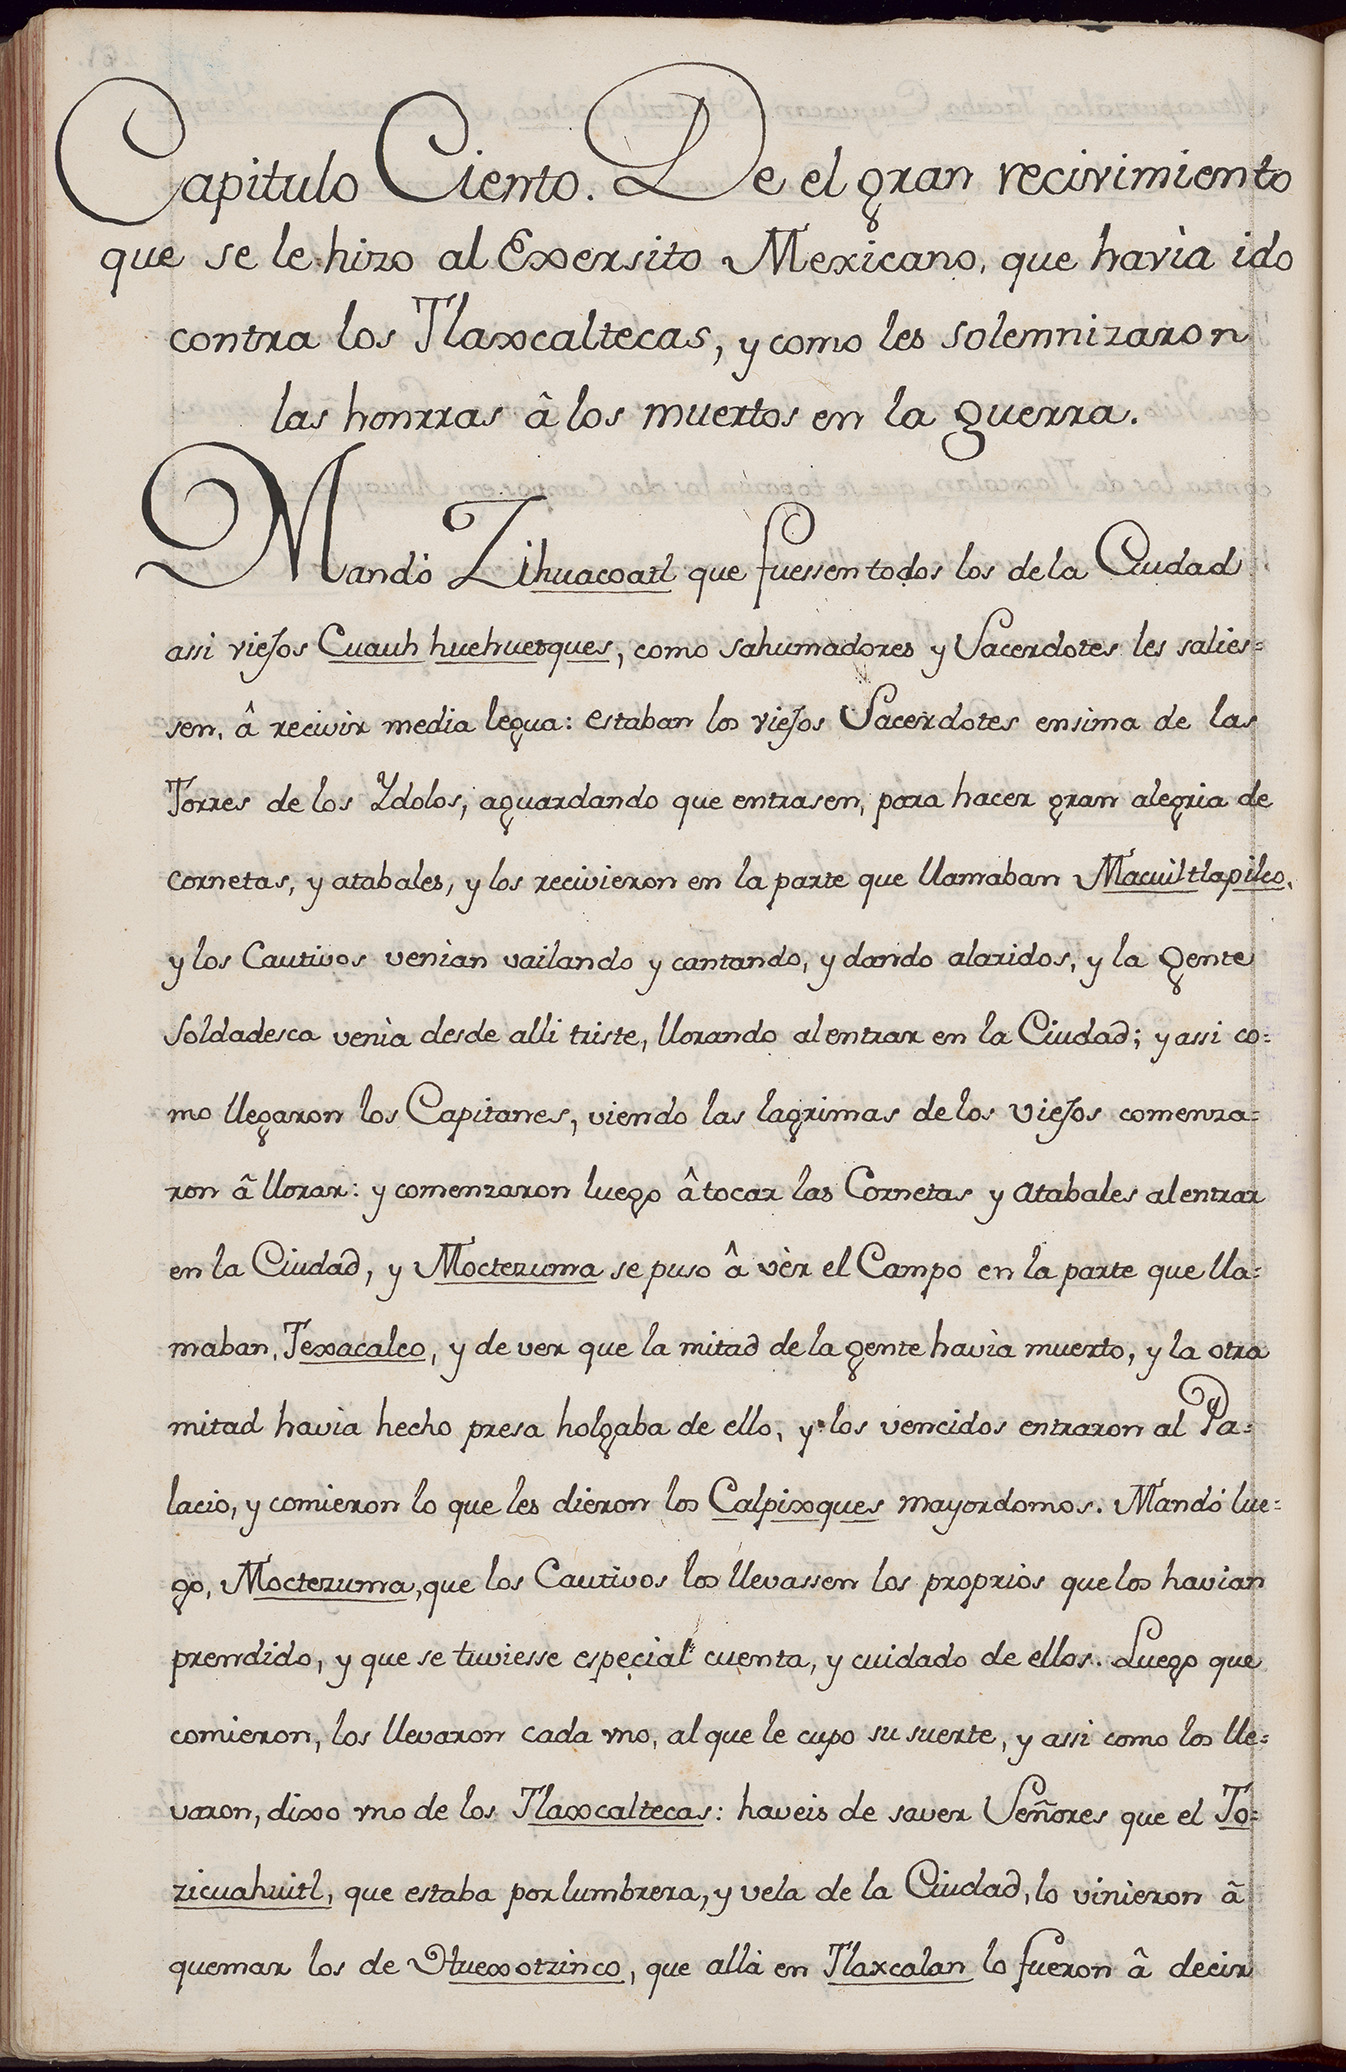 Capitulo Ciento. De el gran recivimiento
que se le hizo al Exersito Mexicano, que havìa ido
contra los Tlaxcaltecas, y como les solemnizaron
las honrras â los muertos en la guerra.
Mandò Zihuacoatl que fuessen todos los de la Ciudad
assi viejos Cuauh huehuetques, como sahumadores y Sacerdotes les salies=
sen, â recivir media legua: estaban los viejos Sacerdotes ensima de las
Torres de los Ydolos, aguardando que entrasen, para hacer gran alegria de
cornetas, y atabales, y los recivieron en la parte que llamaban Macuiltlapilco,
y los Cautivos venian vailando y cantando, y dando alaridos, y la gente
Soldadesca venìa desde alli triste, llorando al entrar en la Ciudad; y assi co=
mo llegaron los Capitanes, viendo las lagrimas de los viejos comenza=
ron â llorar: y comenzaron luego â tocar las Cornetas y atabales al entrar
en la Ciudad, y Moctezuma se puso â vèr el Campo en la parte que lla=
maban, Texacalco, y de ver que la mitad de la gente havìa muerto, y la otra
mitad havìa hecho presa holgaba de ello, y los vencidos entraron al Pa=
lacio, y comieron lo que les dieron los Calpixques mayordomos. Mandó lue=
go, Moctezuma, que los Cautivos los llevassen los proprios que los havian
prendido, y que se tuviesse especial cuenta, y cuidado de ellos. Luego que
comieron, los llevaron cada vno, al que le cupo su suerte, y assi como los lle=
varon, dixo vno de los Tlaxcaltecas: haveis de saver Señores que el To=
zicuahuitl, que estaba por lumbrera, y vela de la Ciudad, lo vinieron â
quemar los de Huexotzinco, que allà en Tlaxcalan lo fueron â decir